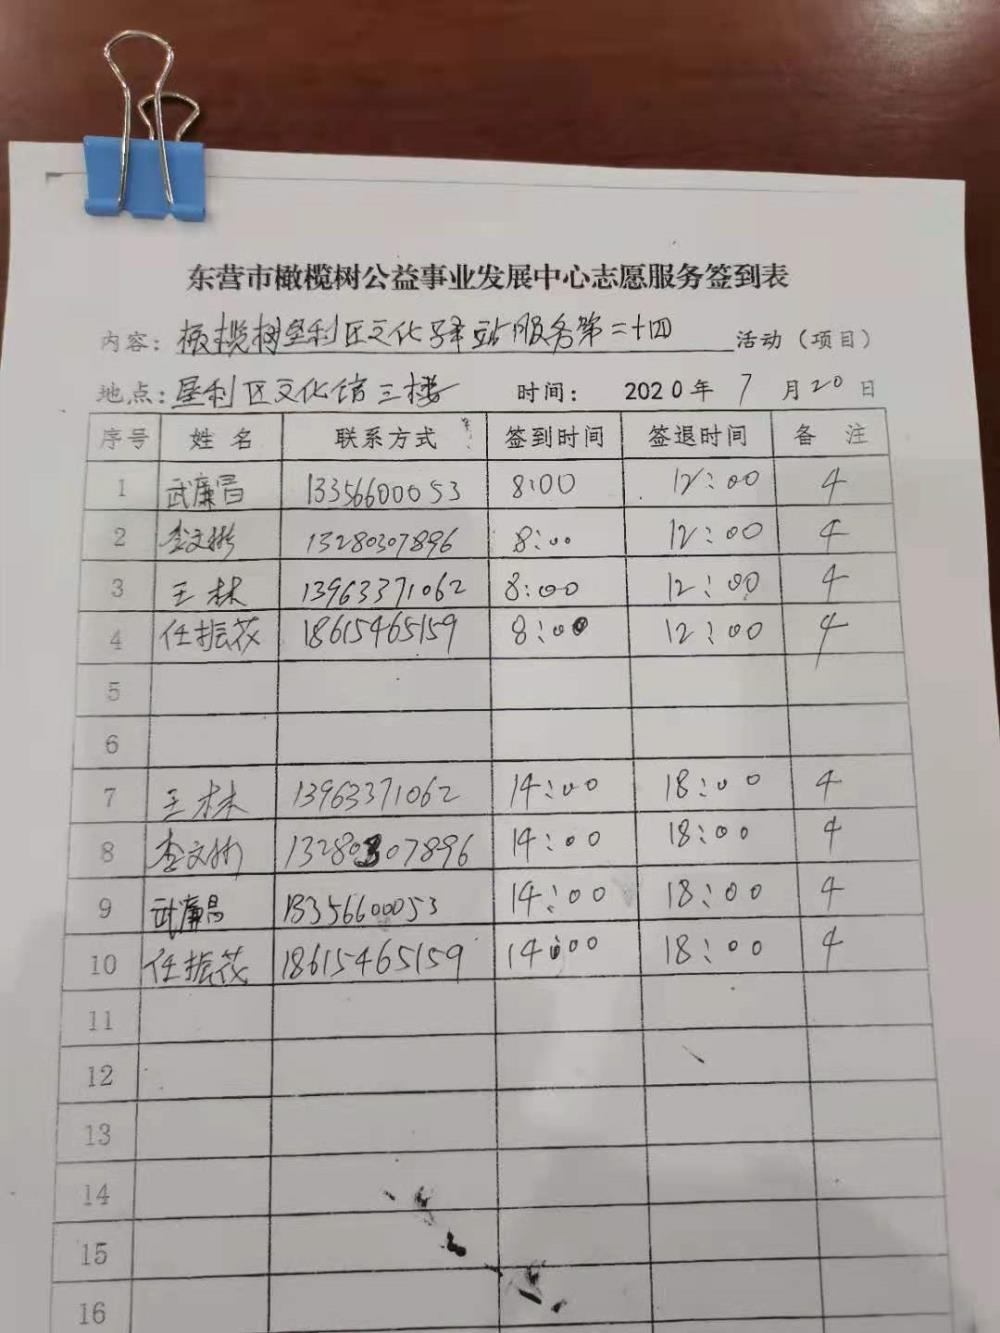 东营市橄榄树公益事业发展中心志愿服务签到表
内容：橄榄树垦利区文化驿站服务第二十四 活动（项目）
地点：垦利区文化馆三楼 时间： 2020年 7 月 20 日
序号 姓 名 联系方式 签到时间 签退时间 备 注
1 武廉昌 13356600053 8:00 12:00 4
2 李文彬 13280307896 8:00 12:00 4
3 王林 13963371062 8:00 12:00 4
4 任振花 18615465159 8:00 12:00 4
5
6
7 王林 13963371062 14:00 18:00 4
8 李文彬 13280307896 14:00 18:00 4
9 武廉昌 13356600053 14:00 18:00 4
10 任振花 18615465159 14:00 18:00 4
11
12
13
14
15
16